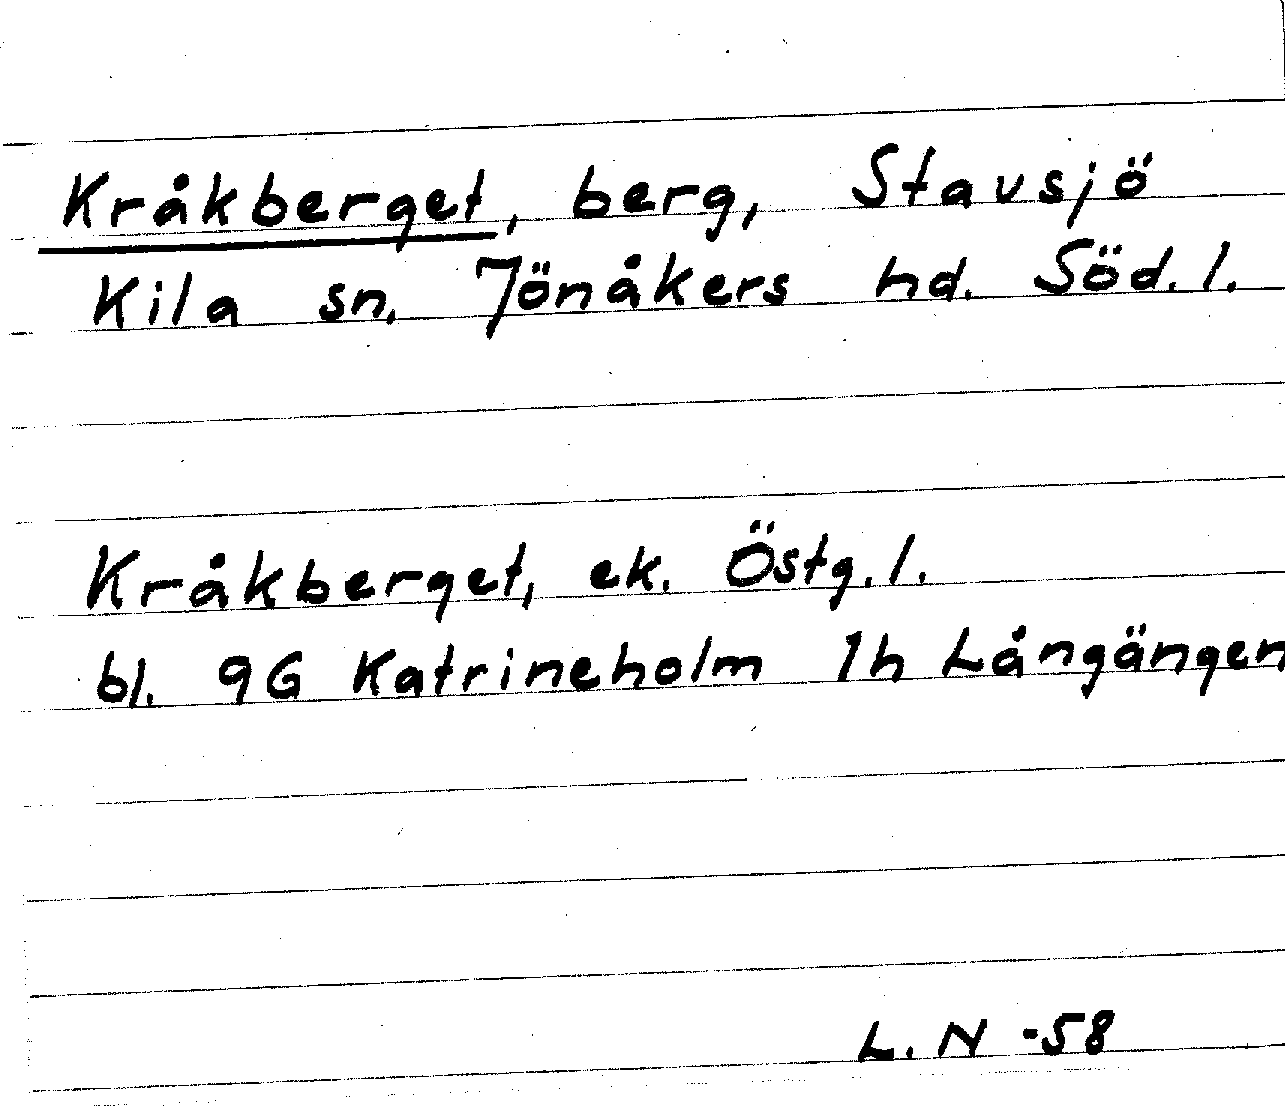 Kråkberget, berg, Stavsjö
Kila sn. Jönåkers hd. Söd.l.
Kråkberget, ek. Östg.l.
bl. 9G Katrineholm 1h Långängen
L. N -58